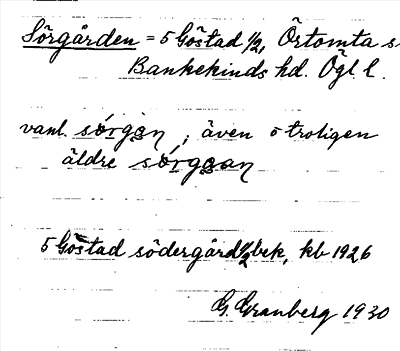 Sörgården = 5 Göstad 1/2, Örtomta s
Bankekinds hd. Ögl. l.
vanl. sörgən, även otroligen
äldre sörgɑan
5 Göstad södergård 1/2 bek, kb 1926
G. Granberg 1930